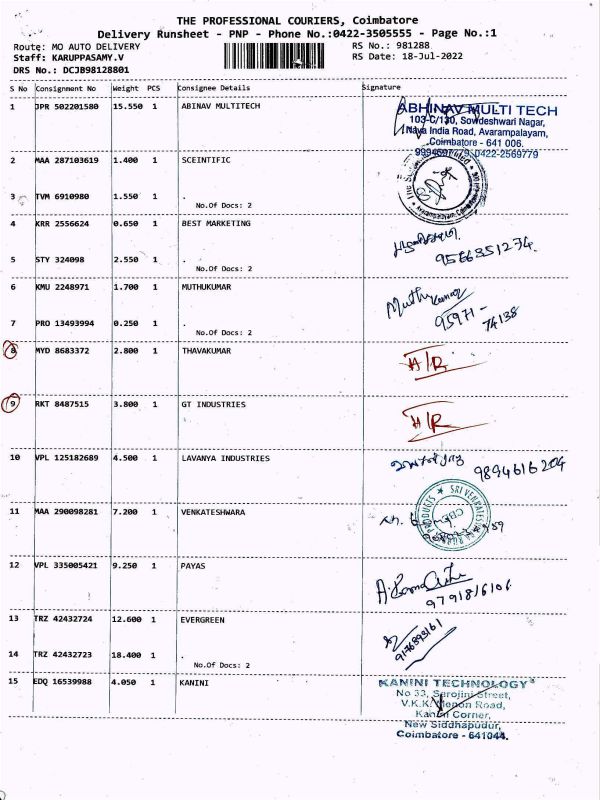 THE PROFESSIONAL COURIERS, Coimbatore
Delivery Runsheet - PNP - Phone No.:0422-3505555 - Page No.:1
Route: MO AUTO DELIVERY RS No.: 981288
Staff: KARUPPASAMY.V RS Date: 18-Jul-2022
DRS No.: DCJB98128801
S No Consignment No Weight PCS Consignee Details Signature
1 JPR 502201580 15.550 1 ABINAV MULTITECH
ABHINAV MULTI TECH
103-C/130, Sowdeshwari Nagar,
India Road, Avarampalayam,
Coimbatore - 641 006.
0422-2569779
2 MAA 287103619 1.400 1 SCEINTIFIC
3 TVM 6910980 1.550 1 .
No.Of Docs: 2
4 KRR 2556624 0.650 1 BEST MARKETING
9566351274.
5 STY 324098 2.550 1 .
No.Of Docs: 2
6 KMU 2248971 1.700 1 MUTHUKUMAR
Muthu Kumar
95971 -
74138
7 PRO 13493994 0.250 1 .
No.Of Docs: 2
8 MYD 8683372 2.800 1 THAVAKUMAR
A/R
9 RKT 8487515 3.800 1 GT INDUSTRIES
A/R
10 VPL 125182689 4.500 1 LAVANYA INDUSTRIES
9894616204
11 MAA 290098281 7.200 1 VENKATESHWARA
12 VPL 335005421 9.250 1 PAYAS
9791816106
13 TRZ 42432724 12.600 1 EVERGREEN
14 TRZ 42432723 18.400 1 .
No.Of Docs: 2
15 EDQ 16539988 4.050 1 KANINI
KANINI TECHNOLOGY
No 33, Sarojini Street,
V.K.K. Menon Road,
Kanini Corner,
New Siddhapudur,
Coimbatore - 641044.